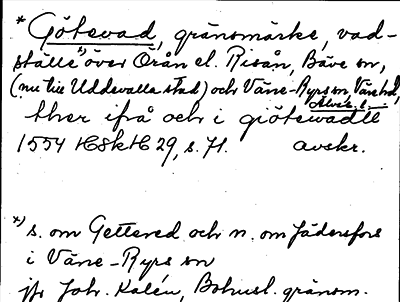 * Götevad, gränsmärke, vad-
ställe *) över Örån el. Risån, Bäve sn,
(nu till Uddevalla stad) och Väne-Ryrs sn, Väne hd,
Älvsb. l.
ther ifå och i giötewadll
1554 HSkH 29, s. 71. avskr.
*) s. om Gettered och n. om Jädersfors
i Väne-Ryrs sn
jfr Joh. Kalén, Bohusl. gränsm.